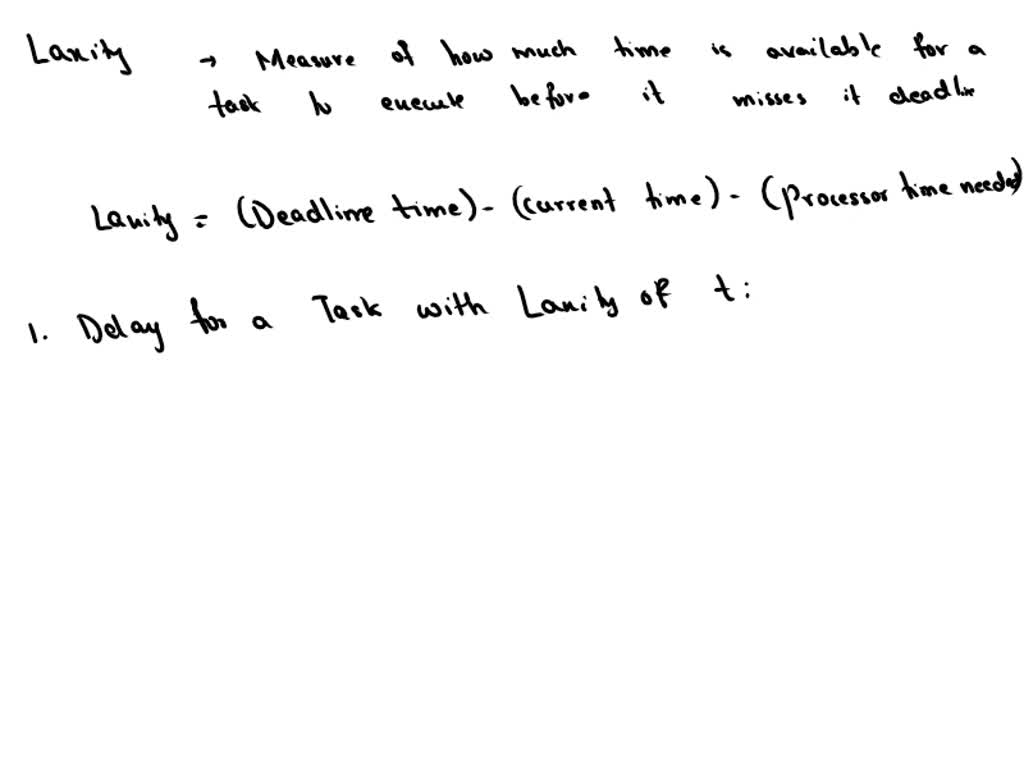 Laxity → Measure of how much time is available for a
task to execute before it misses it deadline
Laxity = (Deadline time) - (current time) - (Processor time needed)
1. Delay for a Task with Laxity of t: